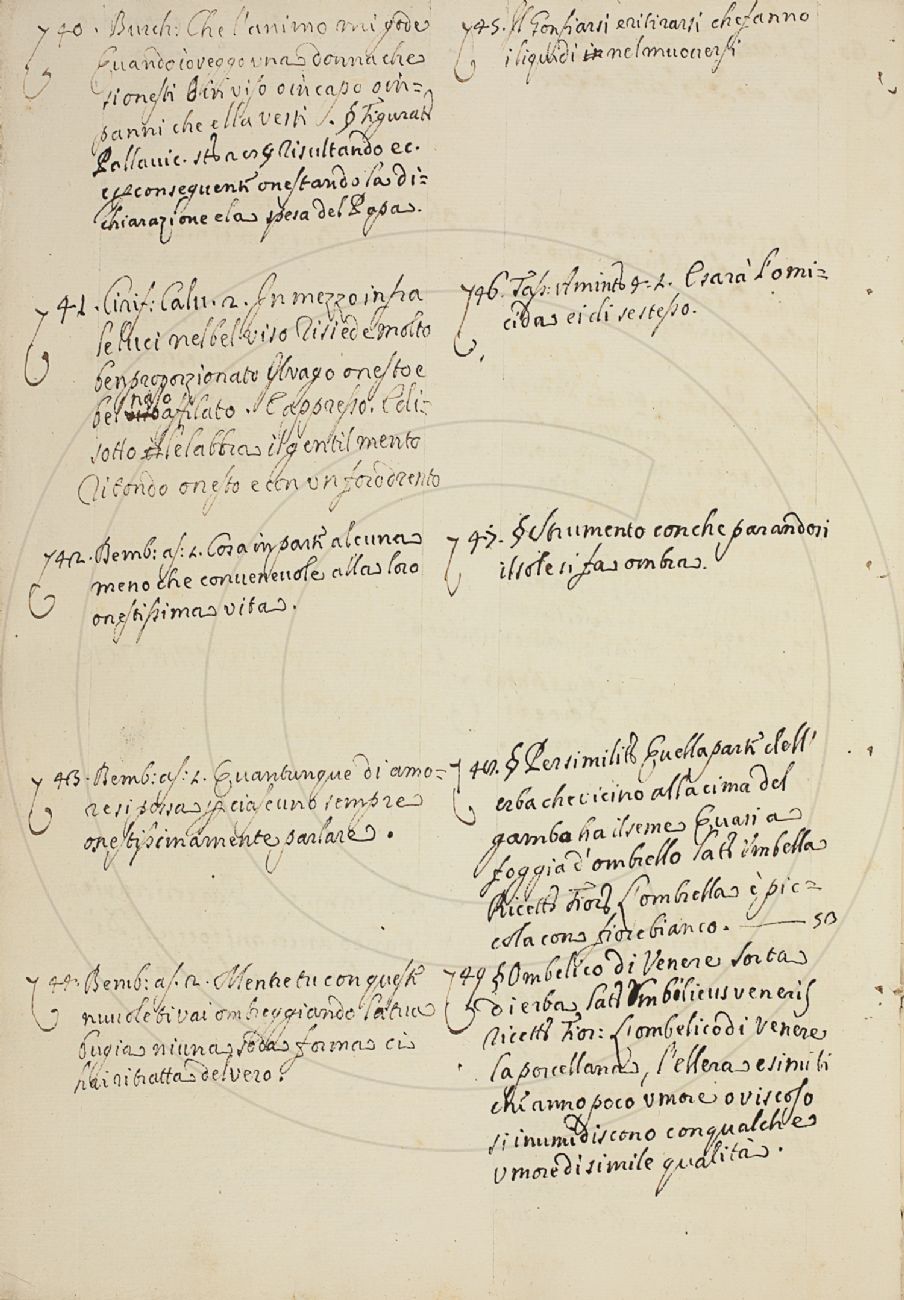 740. Burch: Che l'animo mi gode
Quando io veggo una donna che
si onesti o in viso o in capo o in=
panni che ella vesti . § Figurat
Pallavic. st 2 § Risultando ec.
e conseguent onestando la di=
chiarazione e la spesa del Papa.
741. Cirif: Calv. 2. In mezzo infra
le luci nel bel viso Risiede molto
ben proporzionato Il vago onesto e
bel naso afilato . E appresso. E di=
sotto le labbra il gentil mento
Ritondo onesto e con un foro drento
742. Bemb: as: 2. Cosa in part alcuna
meno che convenevole alla loro
onestissima vita.
743. Bemb: as: 2. Quantunque di amo=
re si possa p ciascuno sempre
onestissimamente parlare.
744. Bemb: as. 2. Mentre tu con quest
nuvole ti vai ombreggiando la tua
bugia niuna soda forma ci
hai ritratta del vero.
745. Il Gonfiarsi e ritirarsi che fanno
i liquidi nel muoversi
746. Tass: Amint 4. 2. E sarà l'omi=
cida ei di se stesso.
747. § Strumento con che parandosi
il sole si fa ombra.
748. § Per similit Quella part dell'
erba che vicino alla cima del
gamba ha il seme Quasi a
foggia d'ombrello lat Umbella
Ricett Fior L'ombrella è pic=
cola con fiore bianco. —— 50
749 § Ombelico di Venere sorta
di erba, lat Umbilicus veneris
Ricett Fior: L'ombelico di Venere
la porcellana, l'ellera e simili
ch'anno poco umore o viscoso
si inumidiscono con qualche
umore di simile qualità.